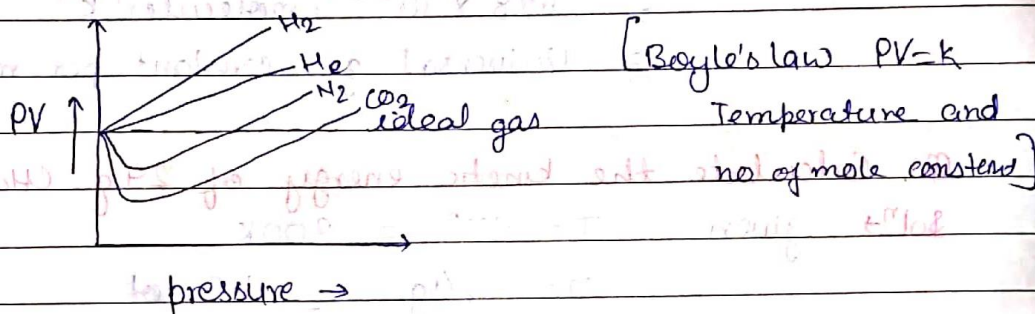 H2
He
N2
CO2
ideal gas
PV ↑
pressure →
[Boyle's law PV=k
Temperature and
no of mole constend]